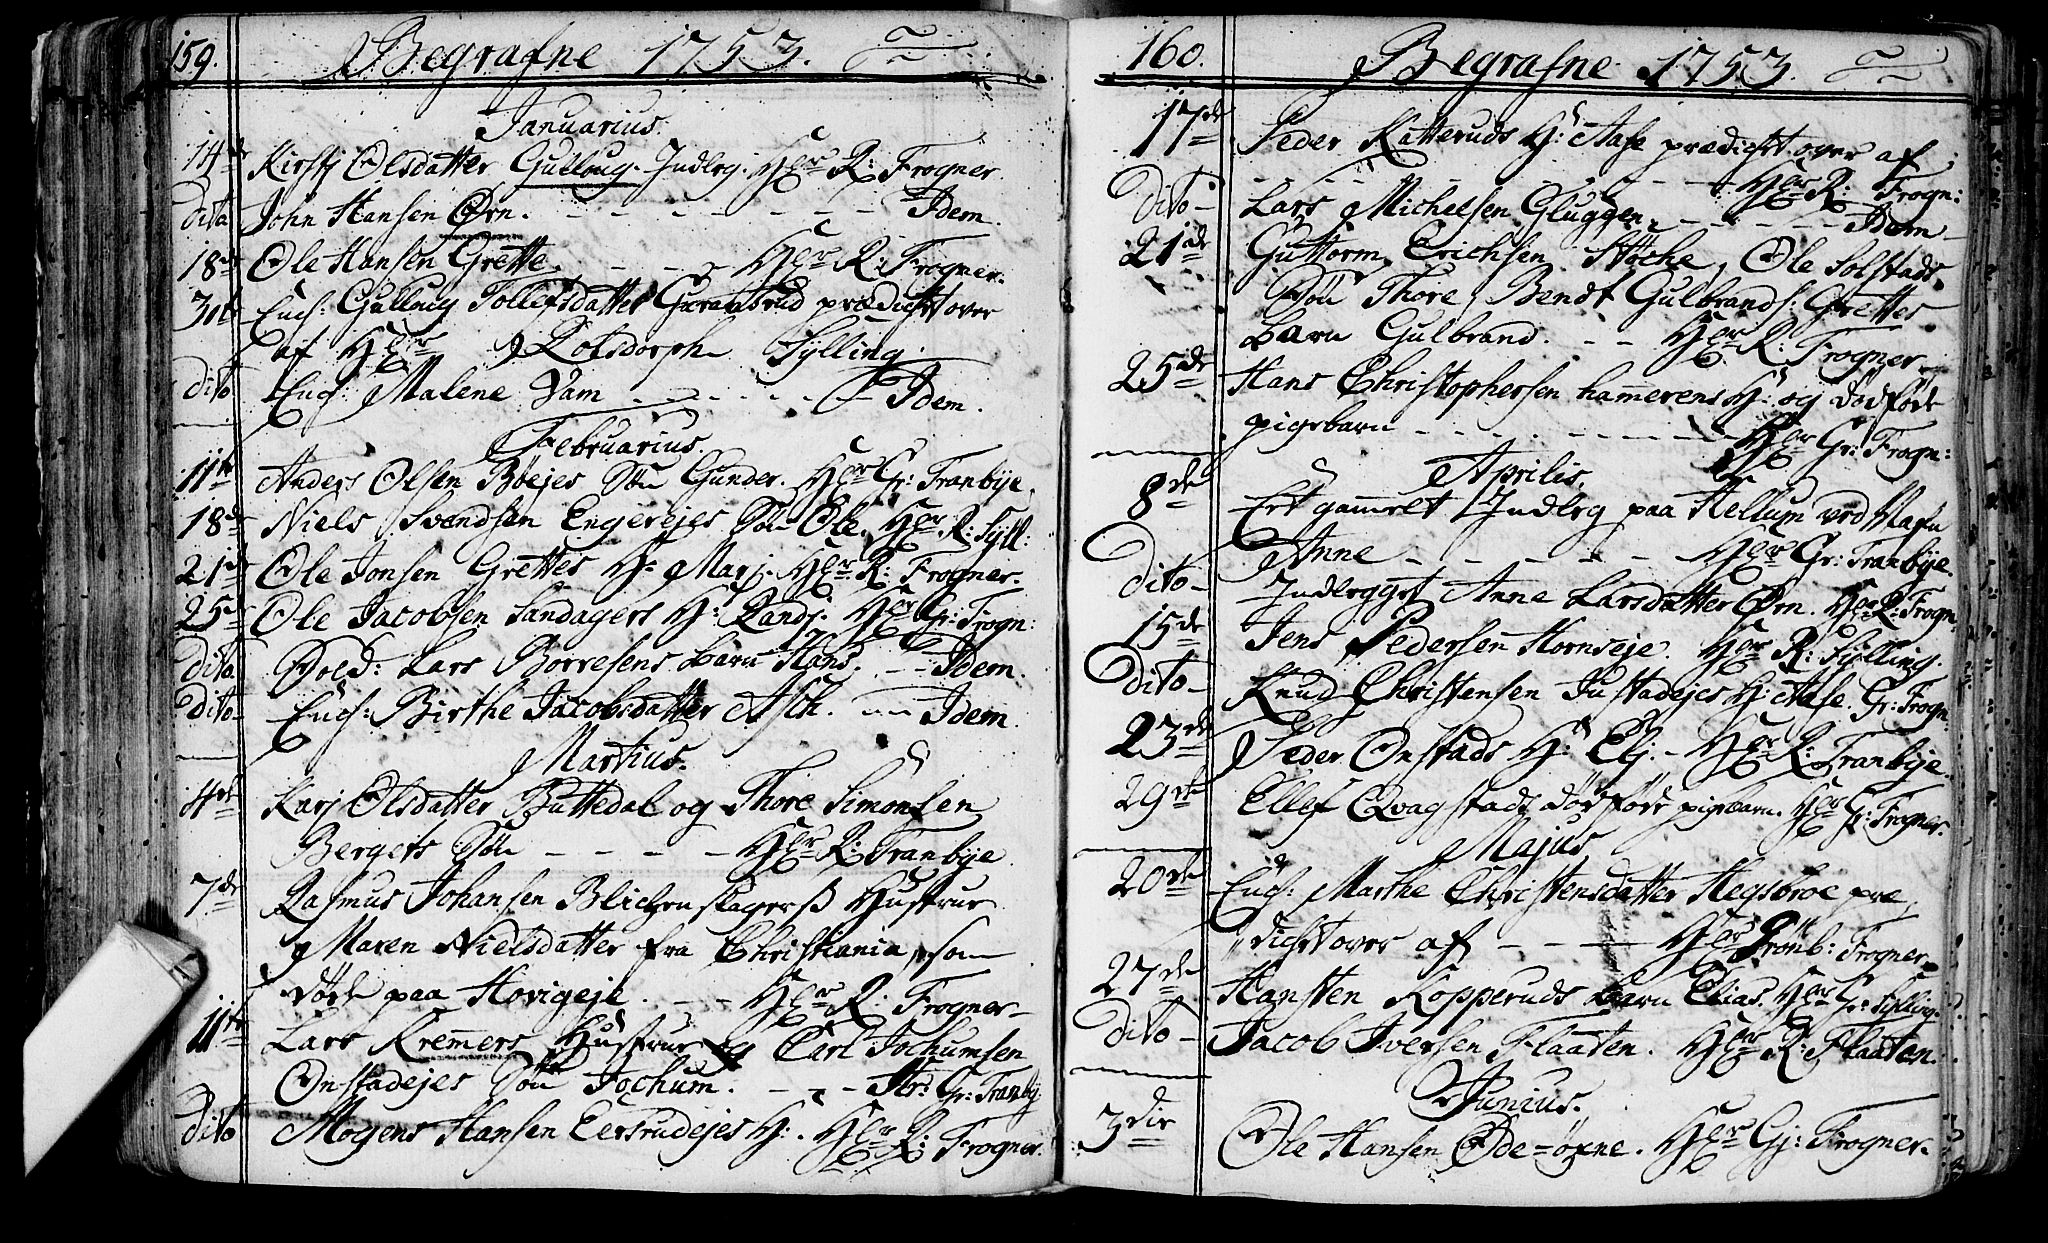 159. Begrafne 1753.
Januarius.
14de Kirstj Olsdatter Gulloug. Indleg. Hr R: Frogner
dito John Hansen Ørn. - - - - - - - Idem.
18de Ole Hansen Grette - - - Hr R: Frogner.
30te Eucf: Gulloug Tollefsdatter Garansrud prædicket over
af Hr Rolsdorph Sylling.
dito Eucf: Malene Vam - - - - - Idem.
Februarius.
11te Anders Olsen Bøejes Søn Gunder. Hr Gr: Tranbÿe
18de Niels Svendsen Engerejes Søn Ole. Hr R: Syll:
21de Ole Jonsen Grettes H: Marj. Hr R: Frogner.
25de Ole Jacobsen Sandagers H: Randj. Hr Gr: Frogn:
Dito Sold: Lars Borresens barn Hans. - - Idem.
Dito Eucf: Birthe Jacobsdatter Asch. - - Idem.
Martius.
4de Karj Olsdatter Buttedal og Thore Simonsen
Bergets Søn - - - - - Hr R: Tranbÿe
7de Rasmus Johansen Blichenslagerß Hustrue
Maren Nielsdatter fra Christiania, som
døde paa Hovigeje. - - Hr R: Frogner
11te Lars Kremers Hustrue og Carl Jochumsen
Onstadejes Søn Jochum. - - - Hr: Gr: Tranbÿ
Dito Mogens Hansen Eertrudejes H:. Hr R: Frogner.
160. Begrafne 1753.
17de Peder Kitteruds H: Aase prædicket over af
- - - - - - - - - Hr R: Frogn:
Dito- Lars Michelsen Gluggen - - - - - Idem
21de Guttorm Erichsen Støche, Ole Solstads
Søn Thore, Bendt Gulbrands: Grettes
barn Gulbrand. - - Hr R: Frogner
25de Hans Christophersen hammerens H: og dødføde
pigebarn - - - - - - - - Hr Gr: Frogn:
Aprilis.
8de Eet gammelt Indleg paa Hellum ved Nafn
Anne - - - - - - - Hr Gr: Tranbÿe.
Dito- Indlegget Anne Larsdatter Ørn. Hr R: Frogn:
15de Jens Pedersen Hornseje. Hr R: Sylling.
Dito- Knud Christensen Justadejes H: Aase. Gr: Frogn:
23de Peder Onstads H: Elj. - Hr R: Tranbÿe.
29de Ellef Qvagstads dødføde pigebarn. Hr Gr: Frogner.
Majus
20de Eucf: Marthe Christensdatter Hegsbroe præ
dicket over af - - - Hr Grønb: Frogner
27de Hansten Kopperuds barn Elias. Hr Gr: Sylling.
Dito- Jacob Iversen Flaaten. Hr R: Flaaten.
Junius.
3die Ole Hansen Øde=øxne. Hr Gj: Frogner.